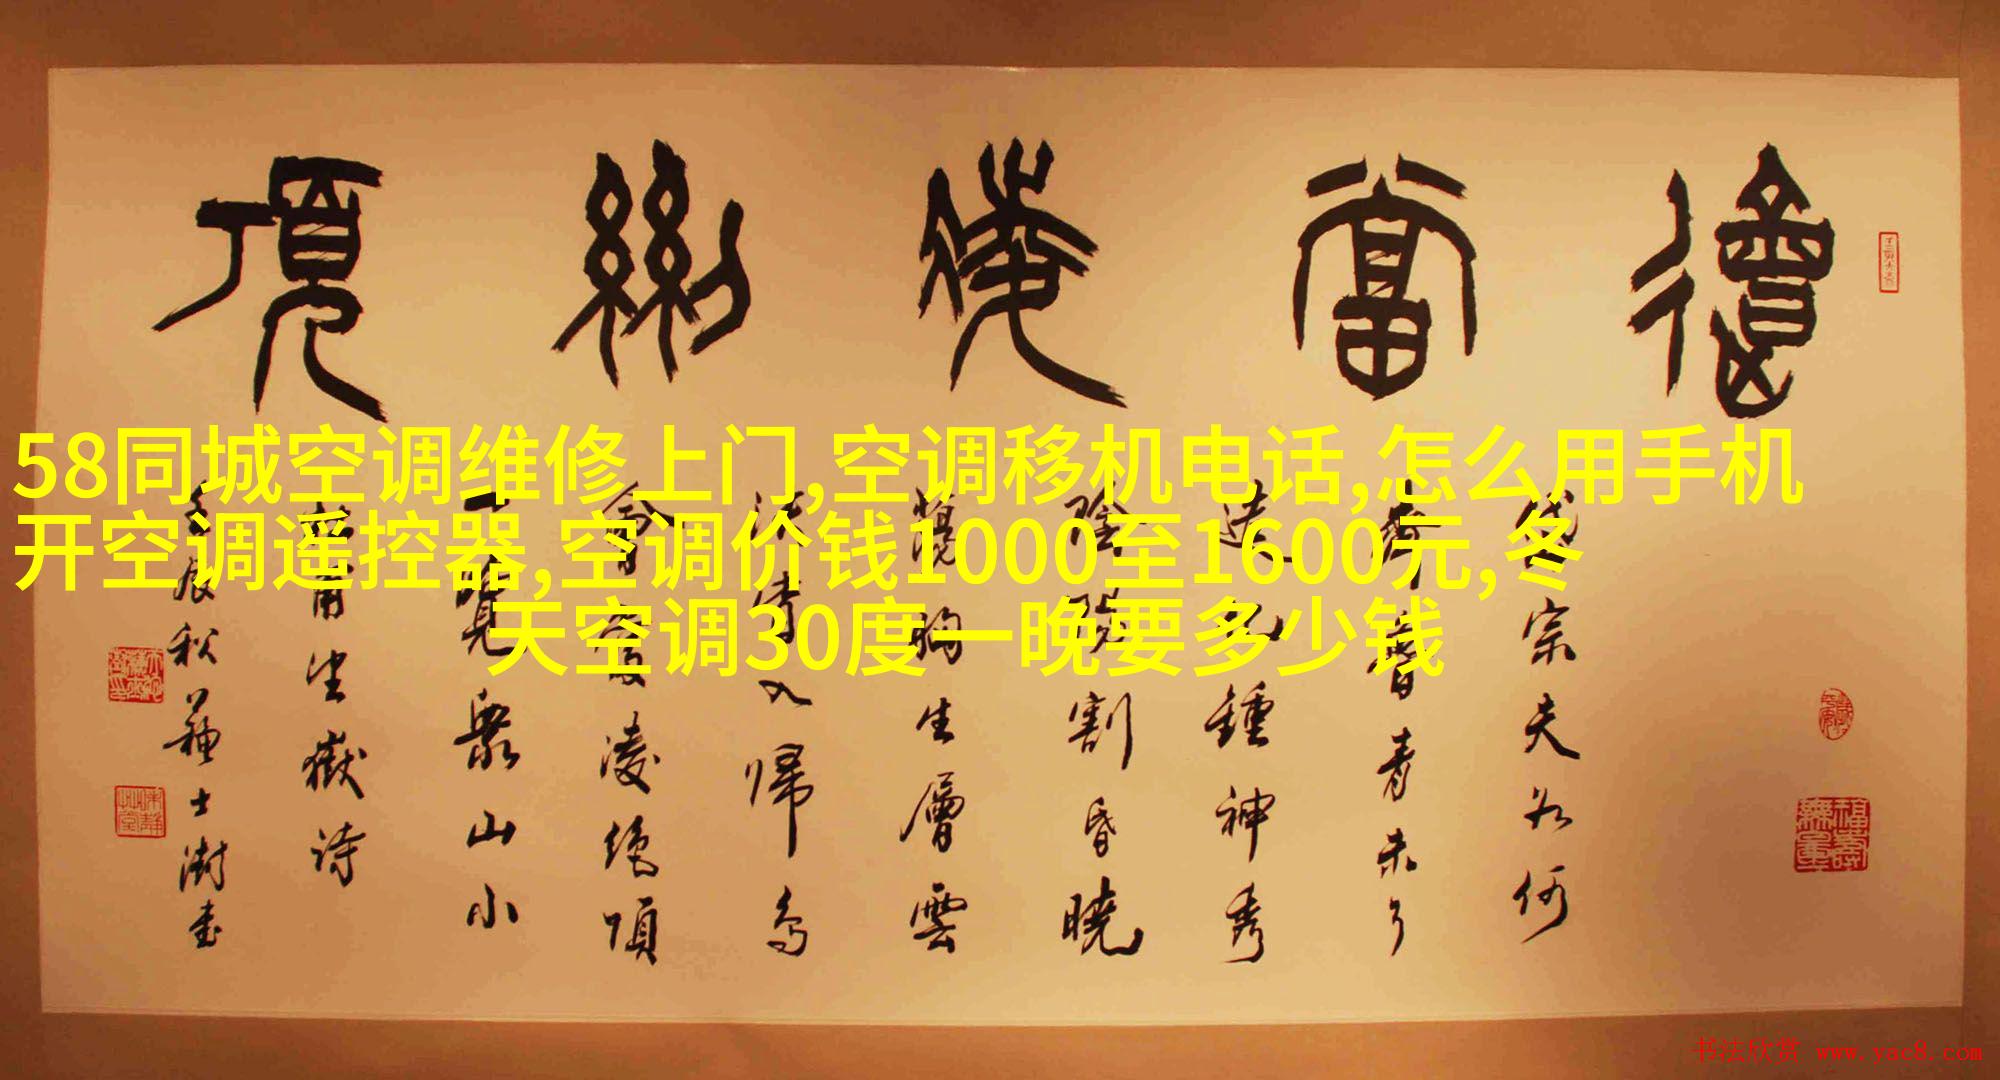 會當凌絕頂
岱宗夫如何
齊魯青未了
造化鍾神秀
陰陽割昏曉
蕩胸生層雲
決眥入歸鳥
會當凌絕頂
一覽眾山小
杜甫望嶽詩
壬辰秋蘇士澍書
福壽無量
58同城空调维修上门,空调移机电话,怎么用手机
开空调遥控器,空调价钱1000至1600元,冬
天空调30度一晚要多少钱
书法欣赏 www.yac8.com